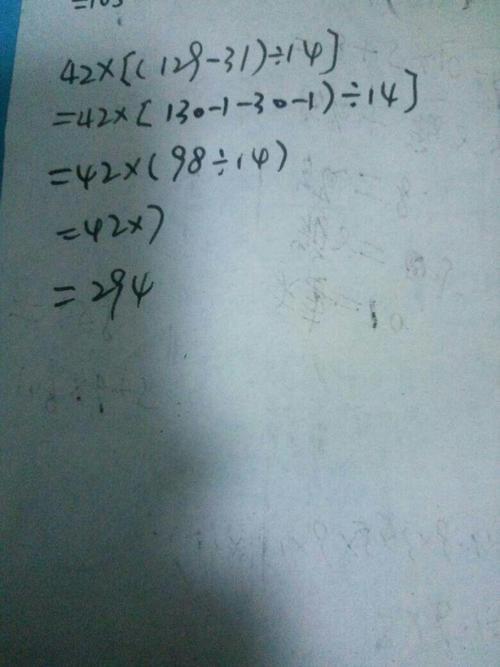 =103
42×[(129-31)÷14]
=42×[130-1-30-1)÷14]
=42×(98÷14)
=42×7
=294